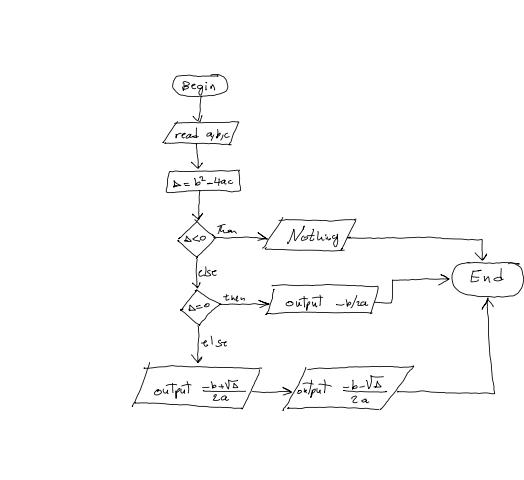 Begin
read a,b,c
Δ = b² - 4ac
Δ<0
then
Nothing
else
End
Δ=0
then
output -b/2a
else
output (-b+√Δ)/2a
output (-b-√Δ)/2a